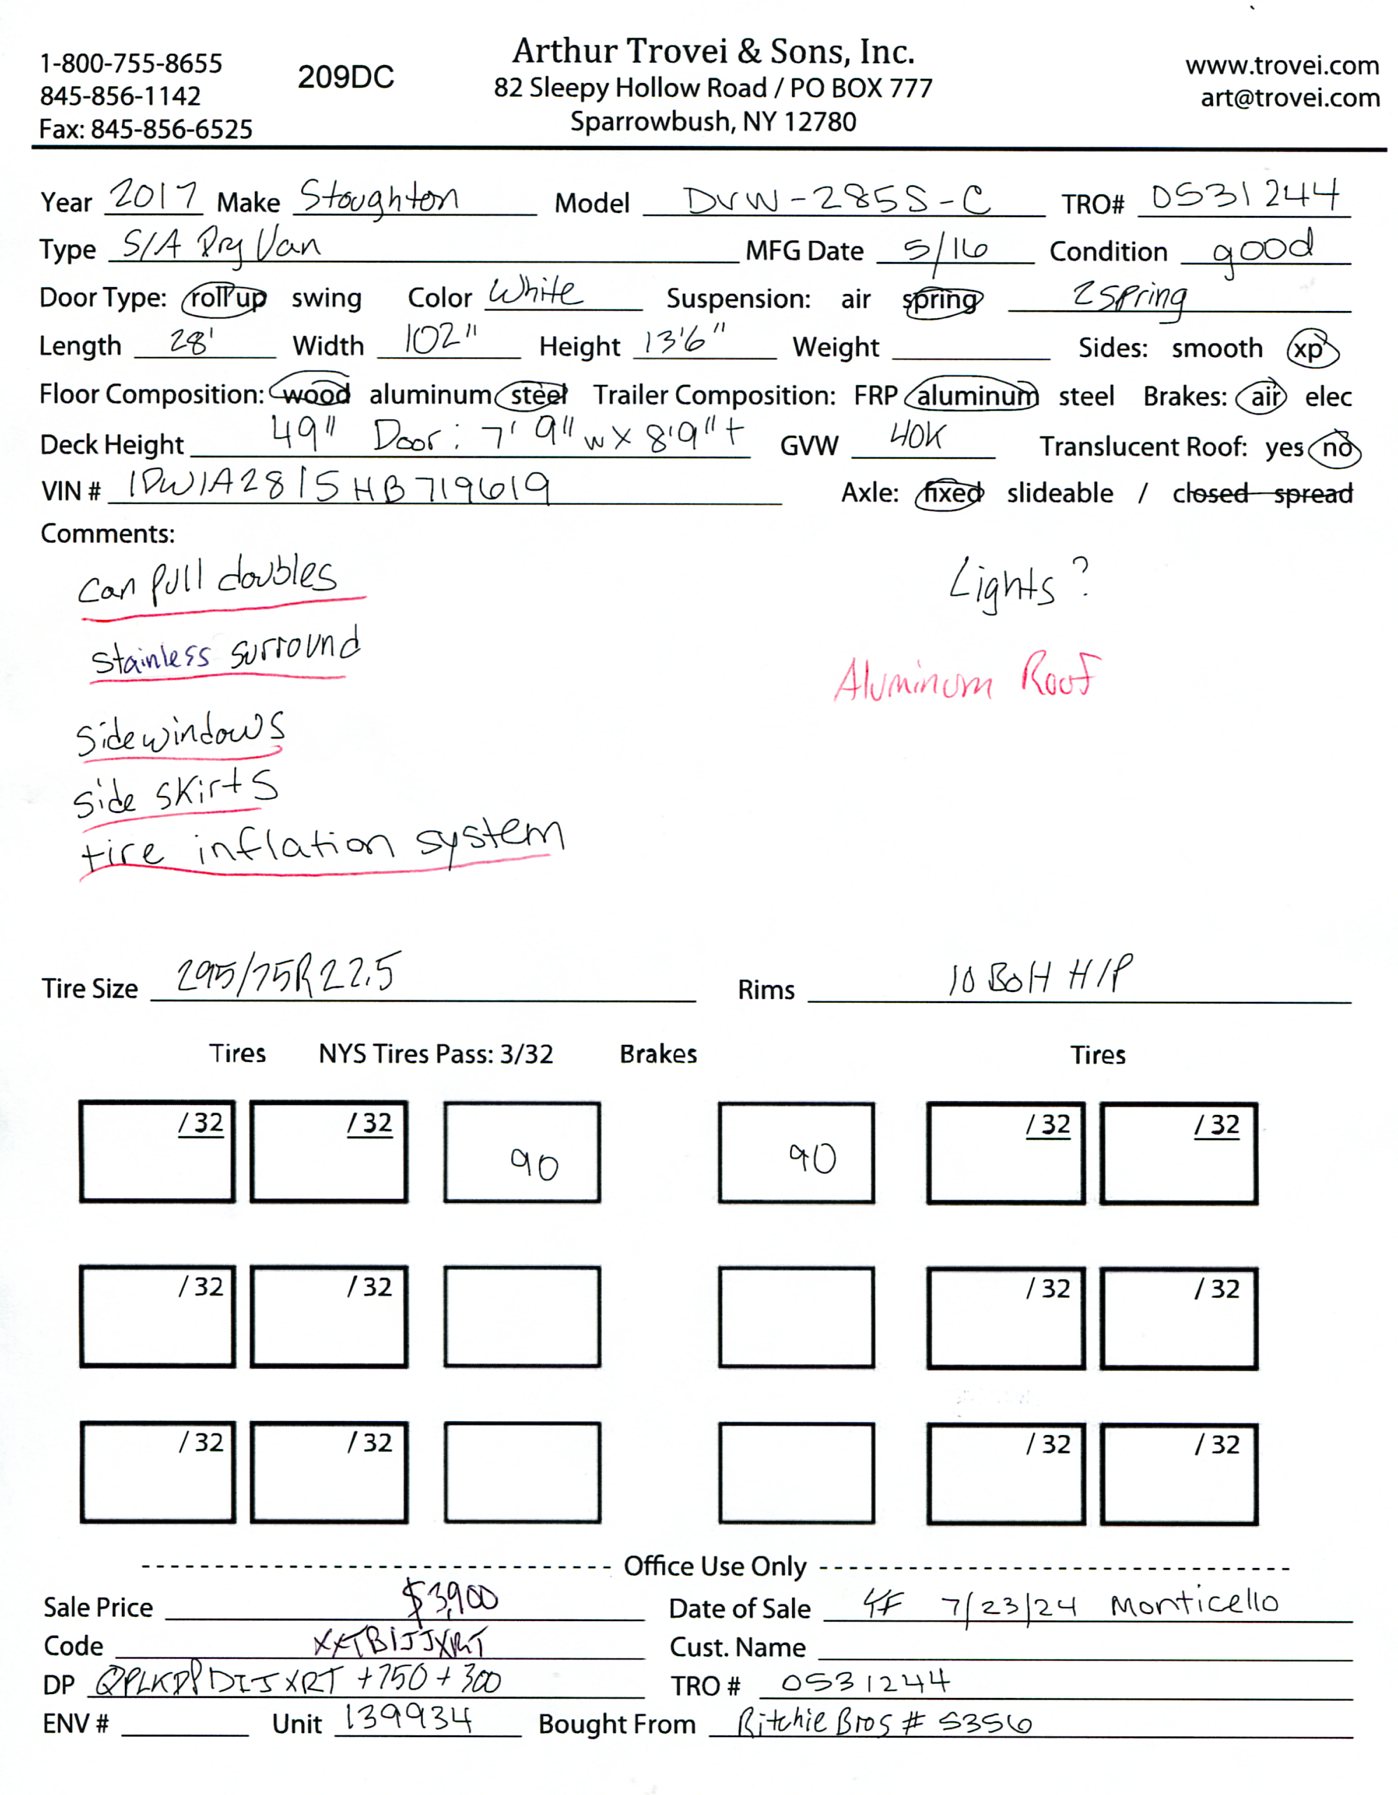 1-800-755-8655
845-856-1142
Fax: 845-856-6525
209DC
Arthur Trovei & Sons, Inc.
82 Sleepy Hollow Road / PO BOX 777
Sparrowbush, NY 12780
www.trovei.com
art@trovei.com
Year 2017 Make Stoughton Model DVW-285S-C TRO# 0531244
Type S/A Dry Van MFG Date 5/16 Condition good
Door Type: roll up swing Color White Suspension: air spring 2 spring
Length 28' Width 102" Height 13'6" Weight Sides: smooth xp
Floor Composition: wood aluminum steel Trailer Composition: FRP aluminum steel Brakes: air elec
Deck Height 49" Door: 7' 9" w x 8'9"t GVW 40K Translucent Roof: yes no
VIN # 1DW1A2815HB719619 Axle: fixed slideable / closed spread
Comments:
can pull doubles
Lights?
stainless surround
Aluminum Roof
side windows
side skirts
tire inflation system
Tire Size 295/75R22.5 Rims 10 Bolt H/P
Tires NYS Tires Pass: 3/32 Brakes Tires
/32 /32 90 90 /32 /32
/32 /32 /32 /32
/32 /32 /32 /32
Office Use Only
Sale Price $3,900 Date of Sale 7/23/24 Monticello
Code Cust. Name
DP +750+300 TRO # 0531244
ENV # Unit 139934 Bought From Ritchie Bros # 5356